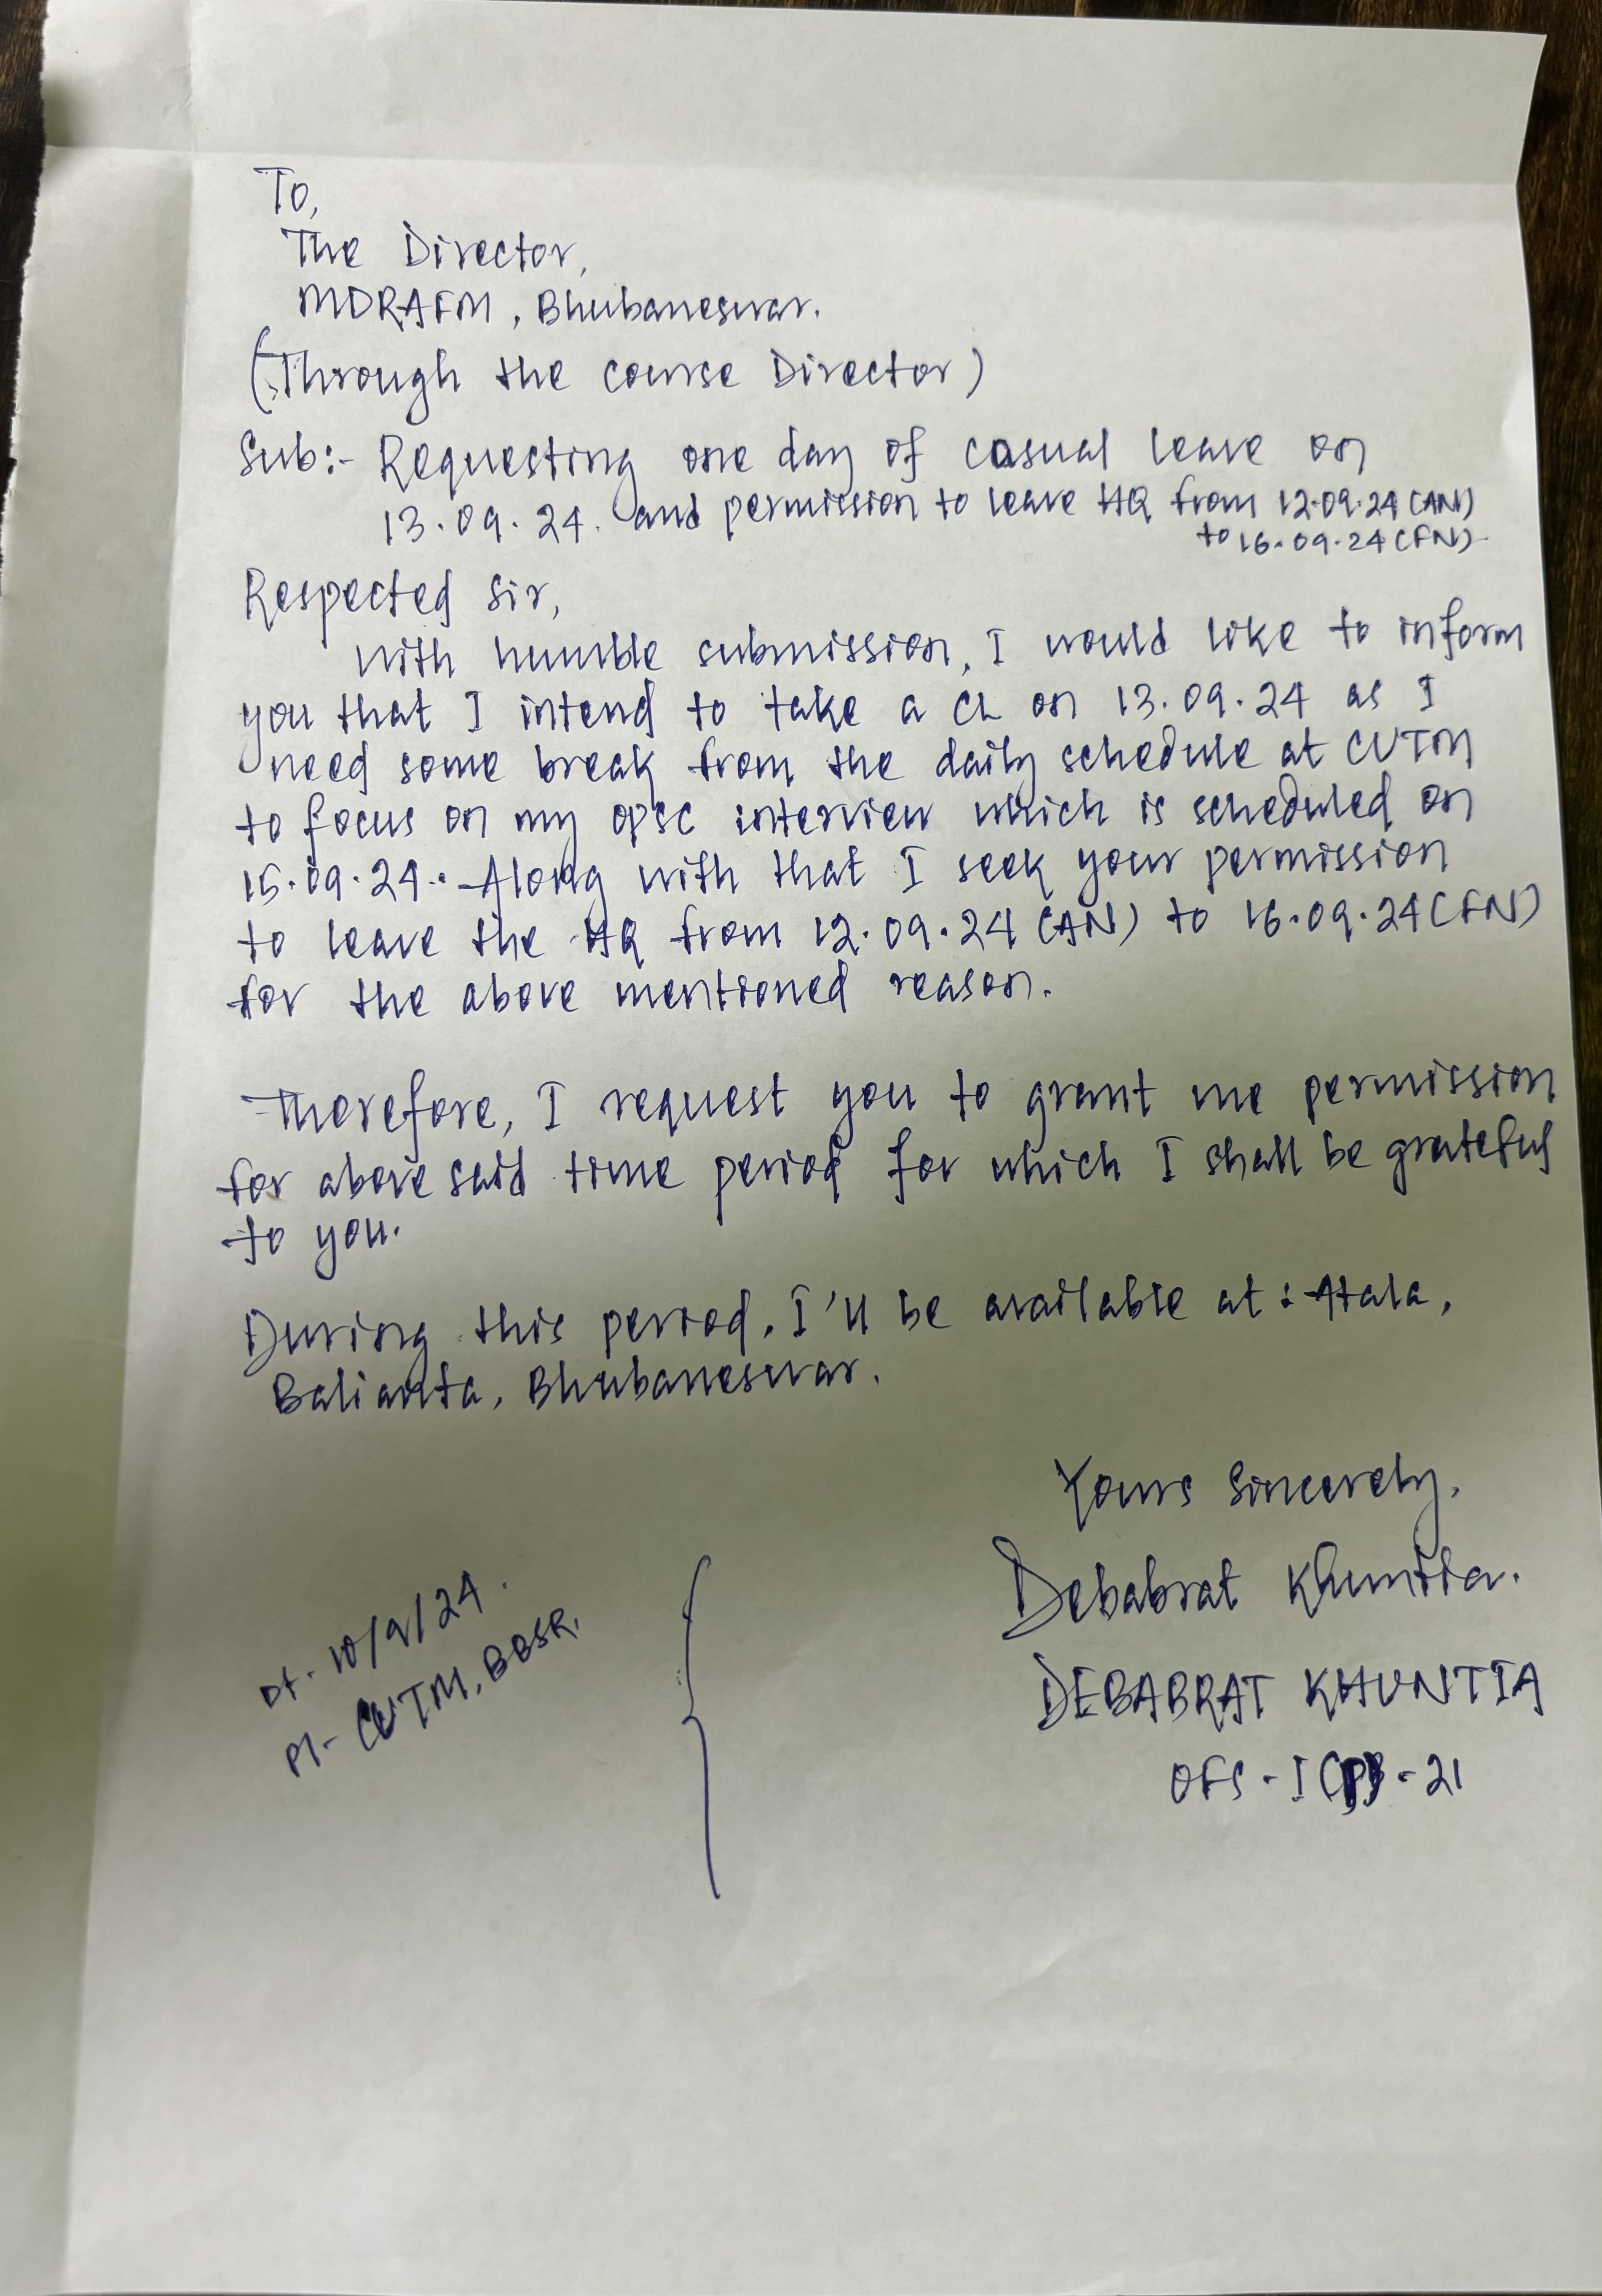 To,
The Director,
MDRAFM, Bhubaneswar.
(Through the course Director)
Sub:- Requesting one day of casual leave on
13.09.24. and permission to leave HQ from 12.09.24 (AN)
to 16.09.24 (FN)
Respected Sir,
With humble submission, I would like to inform
you that I intend to take a CL on 13.09.24 as I
need some break from the daily schedule at CUTM
to focus on my OPSC interview which is scheduled on
15.09.24. Along with that I seek your permission
to leave the HQ from 12.09.24 (AN) to 16.09.24 (FN)
for the above mentioned reason.
Therefore, I request you to grant me permission
for above said time period for which I shall be grateful
to you.
During this period, I'll be available at : Atala,
Balianta, Bhubaneswar.
Yours Sincerely,
Debabrat Khuntia.
DEBABRAT KHUNTIA
OFS - I - 21
Dt. 10/9/24.
Pl - CUTM, BBSR.